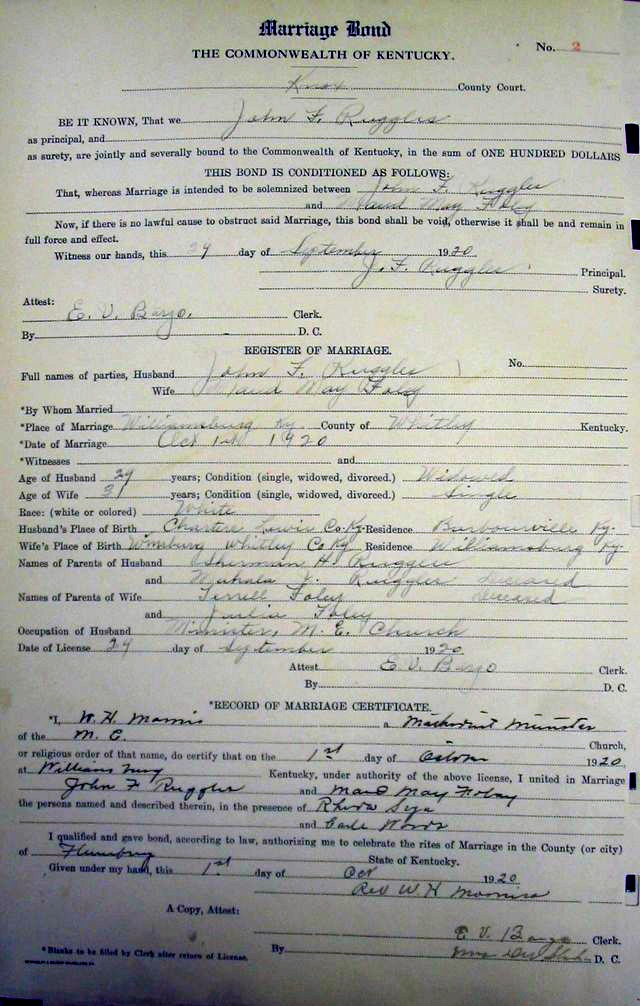 Marriage Bond
No. 2
THE COMMONWEALTH OF KENTUCKY.
Knox County Court.
BE IT KNOWN, That we John F. Ruggles
as principal, and
as surety, are jointly and severally bound to the Commonwealth of Kentucky, in the sum of ONE HUNDRED DOLLARS
THIS BOND IS CONDITIONED AS FOLLOWS:
That, whereas Marriage is intended to be solemnized between John F. Ruggles
and Maud May Foley
Now, if there is no lawful cause to obstruct said Marriage, this bond shall be void, otherwise it shall be and remain in
full force and effect.
Witness our hands, this 29 day of September 1920
J. F. Ruggles Principal.
Surety.
Attest:
E. V. Bargo. Clerk.
By D. C.
REGISTER OF MARRIAGE.
Full names of parties, Husband John F. Ruggles No.
Wife Maud May Foley
*By Whom Married
*Place of Marriage Williamsburg Ky County of Whitley Kentucky.
*Date of Marriage Oct 1st 1920
*Witnesses and
Age of Husband 29 years; Condition (single, widowed, divorced.) Widowed
Age of Wife 31 years; Condition (single, widowed, divorced.) Single
Race: (white or colored) White
Husband's Place of Birth Lewis Co Ky Residence Barbourville Ky.
Wife's Place of Birth Whitley Co Ky Residence Williamsburg Ky
Names of Parents of Husband Sherman H. Ruggles
and Mahala J. Ruggles deceased
Names of Parents of Wife Terrell Foley deceased
and Julia Foley
Occupation of Husband Minister, M. E. Church
Date of License 29 day of September 1920
Attest E. V. Bargo Clerk.
By D. C.
*RECORD OF MARRIAGE CERTIFICATE.
*I, W. H. Morris a Methodist Minister
of the M. E. Church,
or religious order of that name, do certify that on the 1st day of October 1920
at Williamsburg Kentucky, under authority of the above license, I united in Marriage
John F Ruggles and Maud May Foley
the persons named and described therein, in the presence of Rhoda
and
I qualified and gave bond, according to law, authorizing me to celebrate the rites of Marriage in the County (or city)
of State of Kentucky.
Given under my hand, this 1st day of Oct 1920
Rev W H Morris
A Copy, Attest:
E V. Bargo Clerk.
*Blanks to be filled by Clerk after return of License.
By D. C.